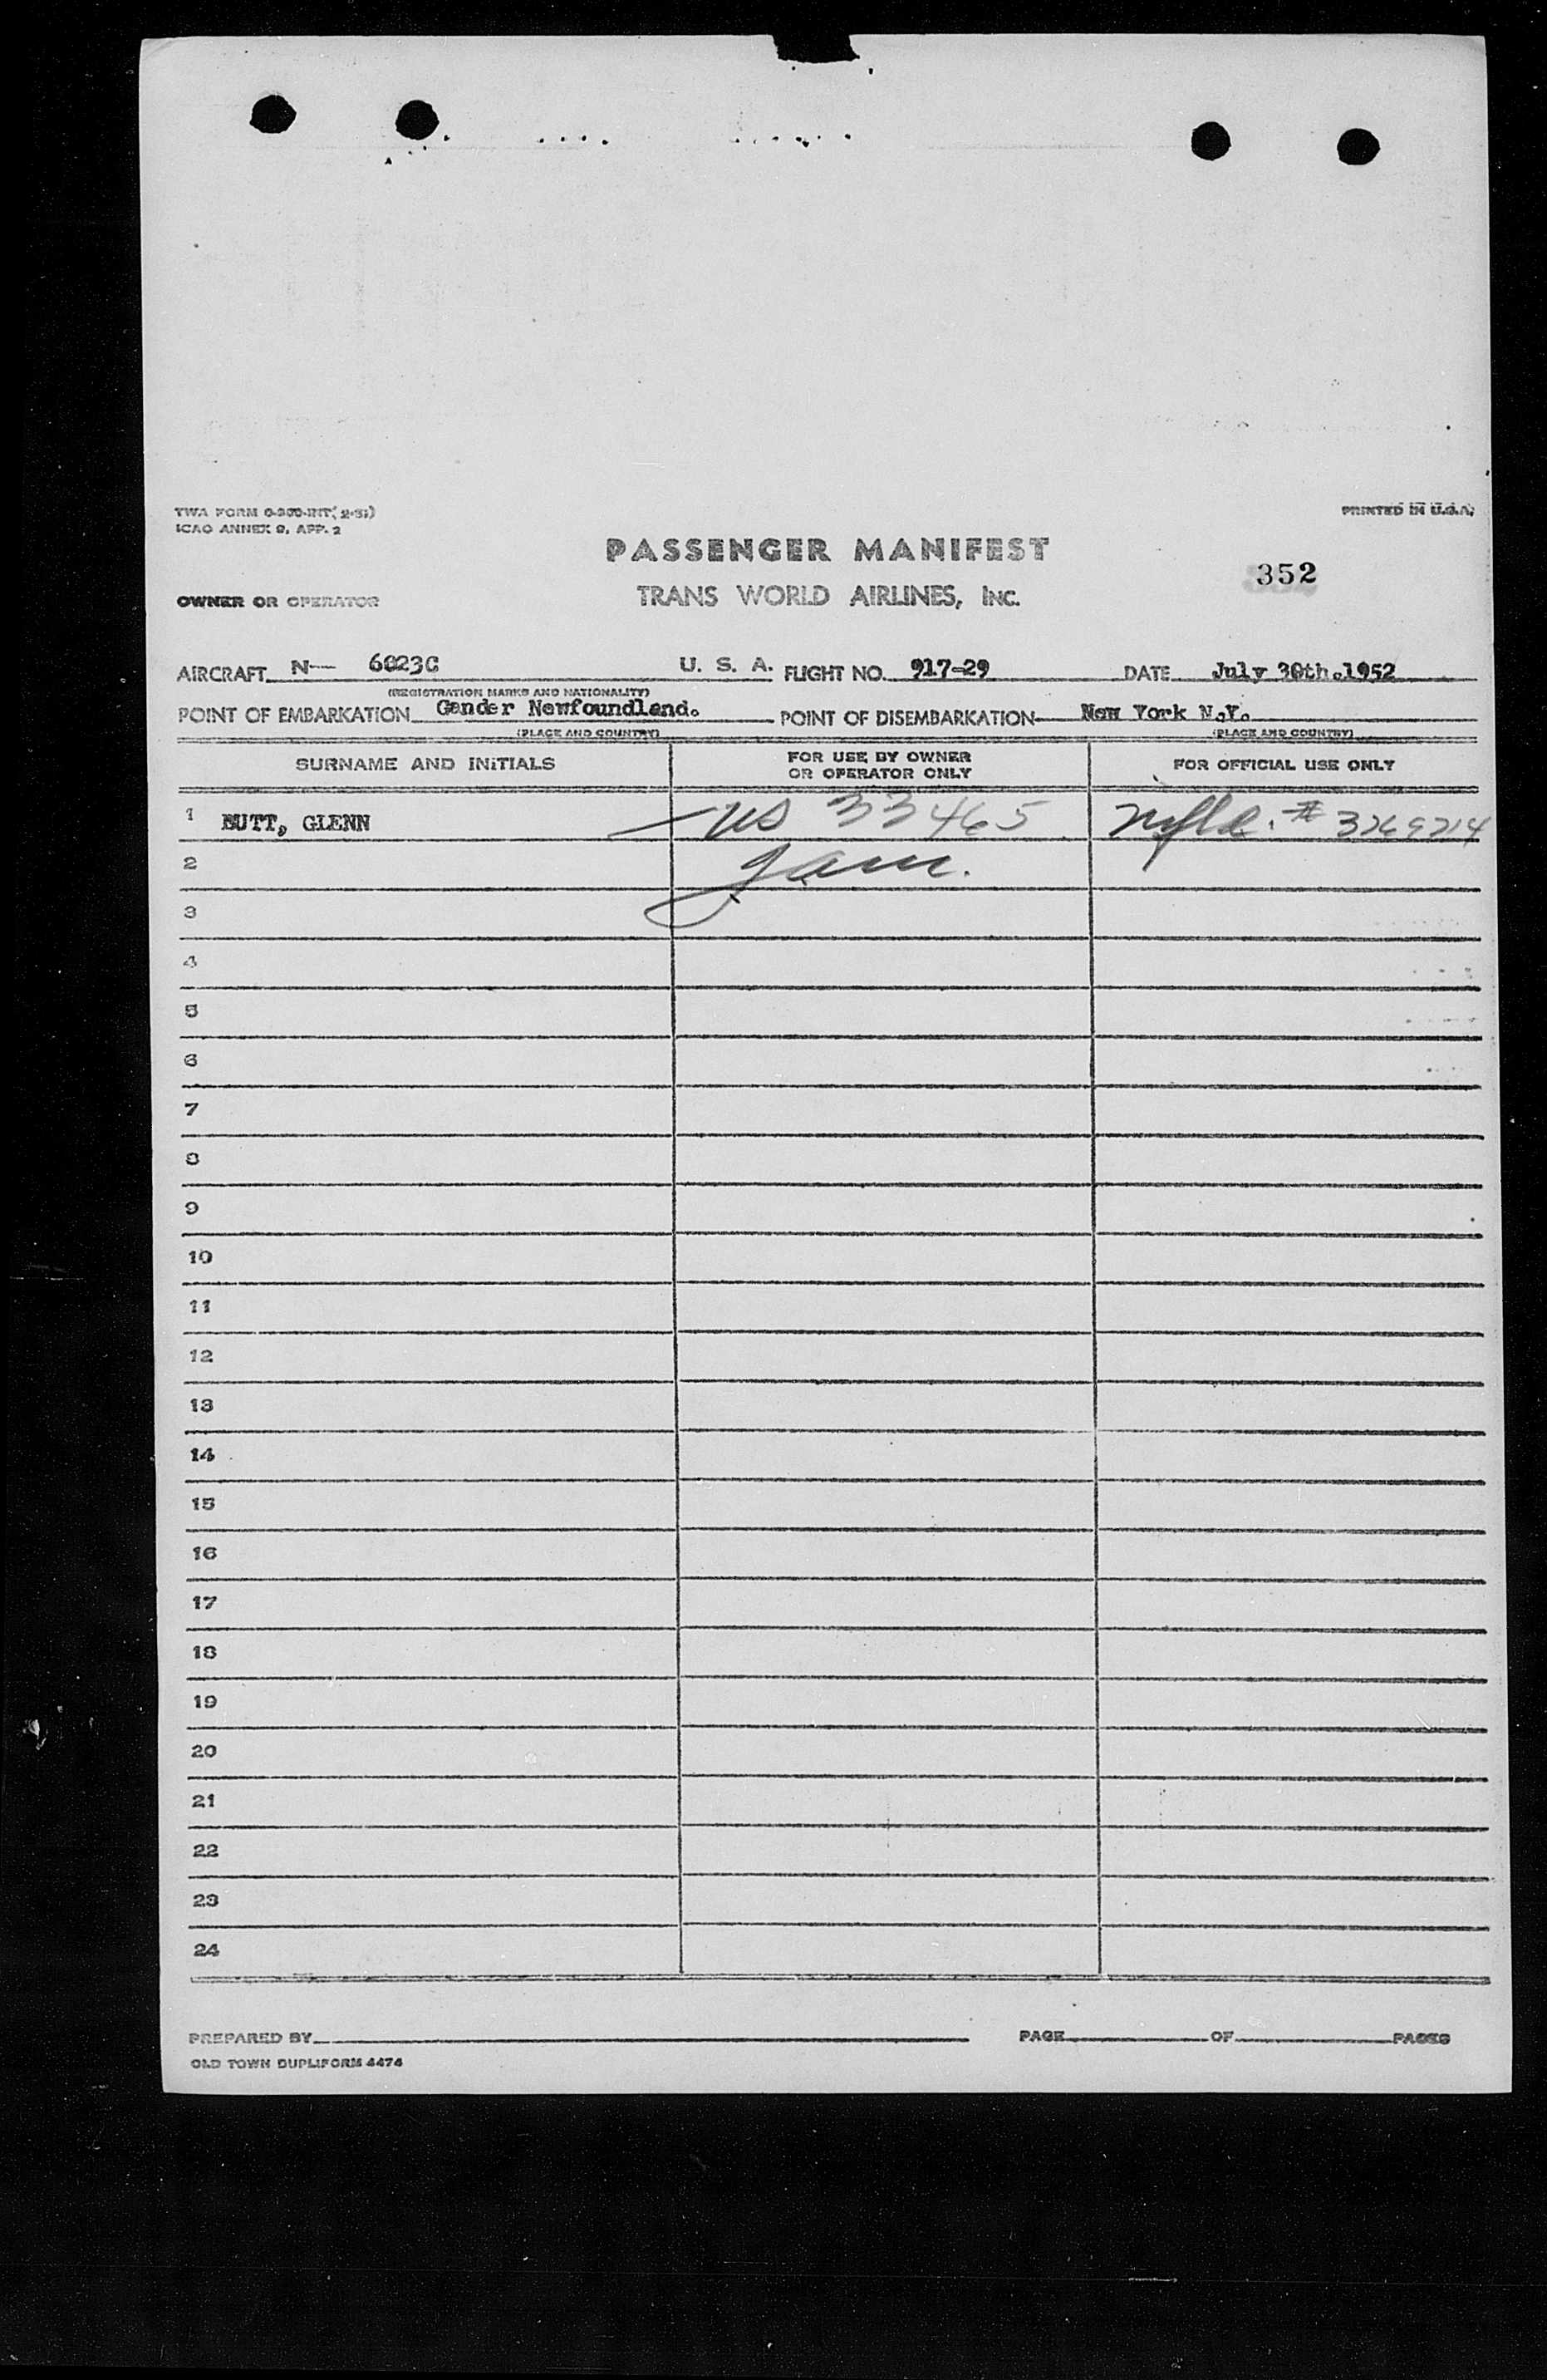 TWA FORM 0-300-INT( 2-51)
ICAO ANNEX 9, APP. 2
PRINTED IN U.S.A.
PASSENGER MANIFEST
352
OWNER OR OPERATOR
TRANS WORLD AIRLINES, INC.
AIRCRAFT N— 6023C U. S. A. FLIGHT NO. 917-29 DATE July 30th.1952
(REGISTRATION MARKS AND NATIONALITY)
POINT OF EMBARKATION Gander Newfoundland. POINT OF DISEMBARKATION New York N.Y.
(PLACE AND COUNTRY) (PLACE AND COUNTRY)
SURNAME AND INITIALS FOR USE BY OWNER OR OPERATOR ONLY FOR OFFICIAL USE ONLY
1 BUTT, GLENN US 33465 Nfld. # 3269214
2
3
4
5
6
7
8
9
10
11
12
13
14
15
16
17
18
19
20
21
22
23
24
PREPARED BY PAGE OF PAGES
OLD TOWN DUPLIFORM 4474